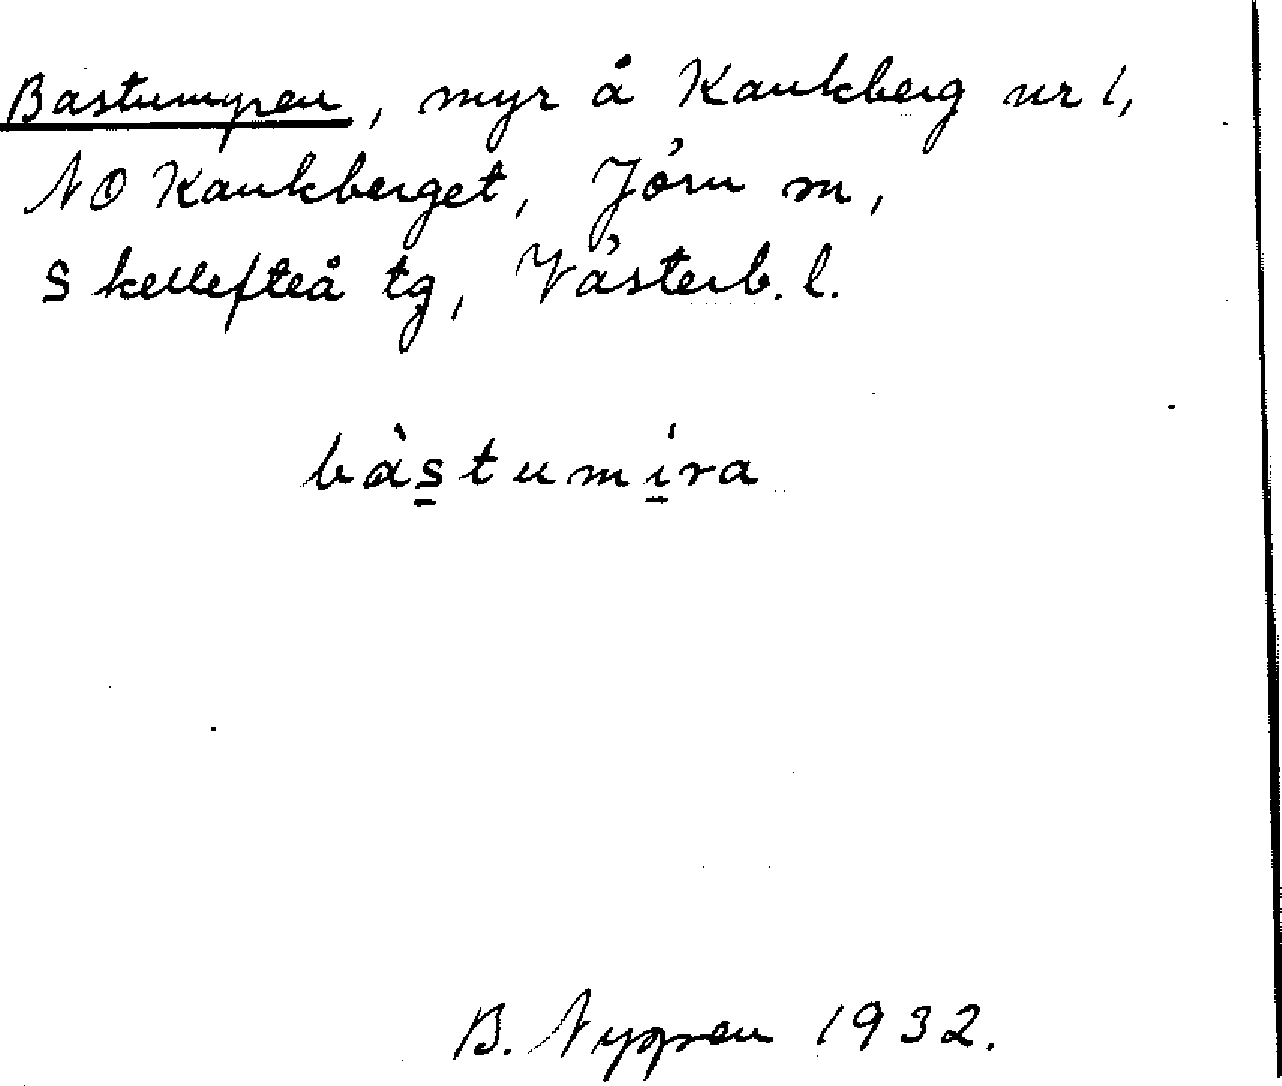 Bastumyren, myr å Kankberg nr 1,
NO Kankberget, Jörn sn,
Skellefteå tg, Västerb. l.
bàstumíra
B. 1932.